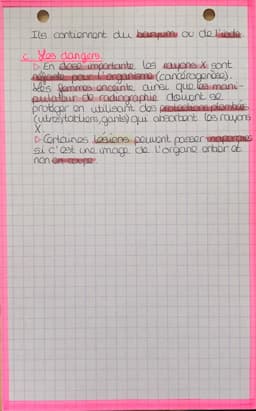 Ils contiennent du baryum ou de l'iode
c. Les dangers.
▷ En dose importante les rayons X sont
néfaste pour l'organisme (cancérogènes).
Les femmes enceinte ainsi que les mani-
pulateur de radiographie doivent se
protéger en utilisant des protections plombés
(vitres, tabliers, gants) qui absorbent les rayons
X.
▷ Certaines lésions peuvent passer inaperçues
si c'est une image de l'organe entier et
non en coupe.